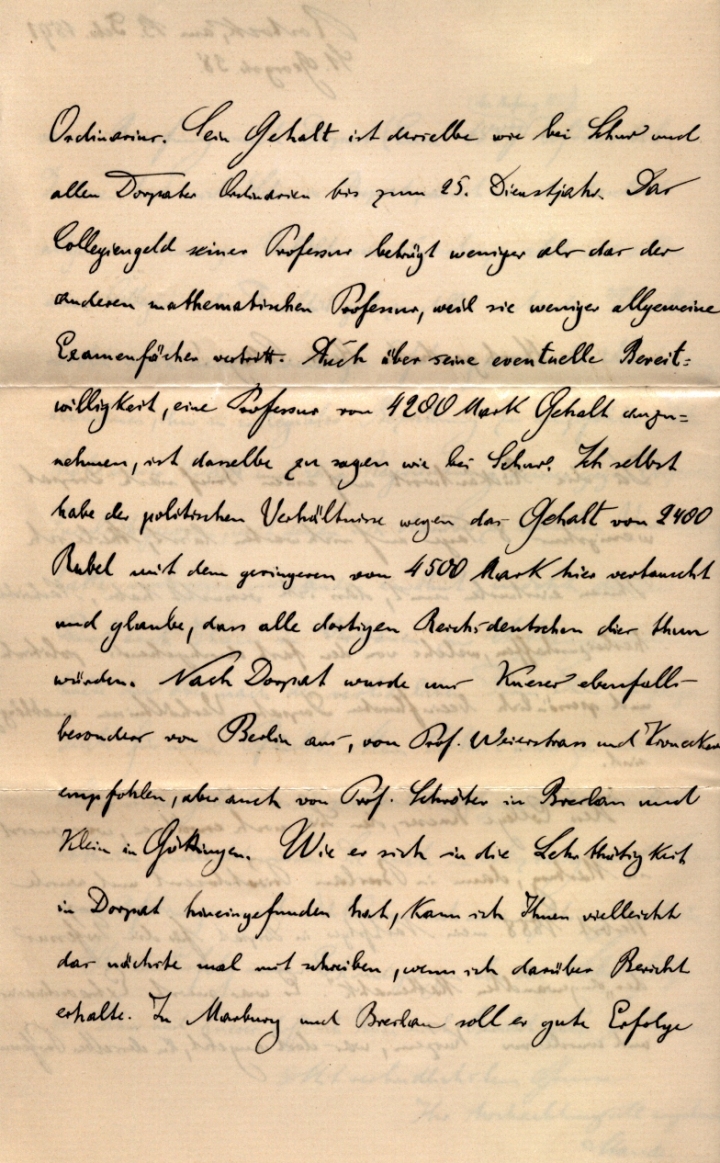 Ordinarius. Sein Gehalt ist derselbe wie bei Schur und
allen Dorpater Ordinarien bis zum 25. Dienstjahr. Das
Collegiengeld seiner Professur beträgt weniger als das der
anderen mathematischen Professur, weil sie weniger allgemeine
Examenfächer vertritt. Auch über seine eventuelle Bereit=
willigkeit, eine Professur von 4200 Mark Gehalt anzu=
nehmen, ist dasselbe zu sagen wie bei Schur. Ich selbst
habe der politischen Verhältnisse wegen das Gehalt von 2400
Rubel mit dem geringeren von 4500 Mark hier vertauscht
und glaube, dass alle dortigen Reichsdeutschen dies thun
würden. Nach Dorpat wurde uns Kneser ebenfalls
besonders von Berlin aus, von Prof. Weierstrass und Kronecker
empfohlen, aber auch von Prof. Schröter in Breslau und
Klein in Göttingen. Wie er sich in die Lehrthätigkeit
in Dorpat hineingefunden hat, kann ich Ihnen vielleicht
das nächste mal mit schreiben, wenn ich darüber Bericht
erhalte. In Marburg und Breslau soll er gute Erfolge